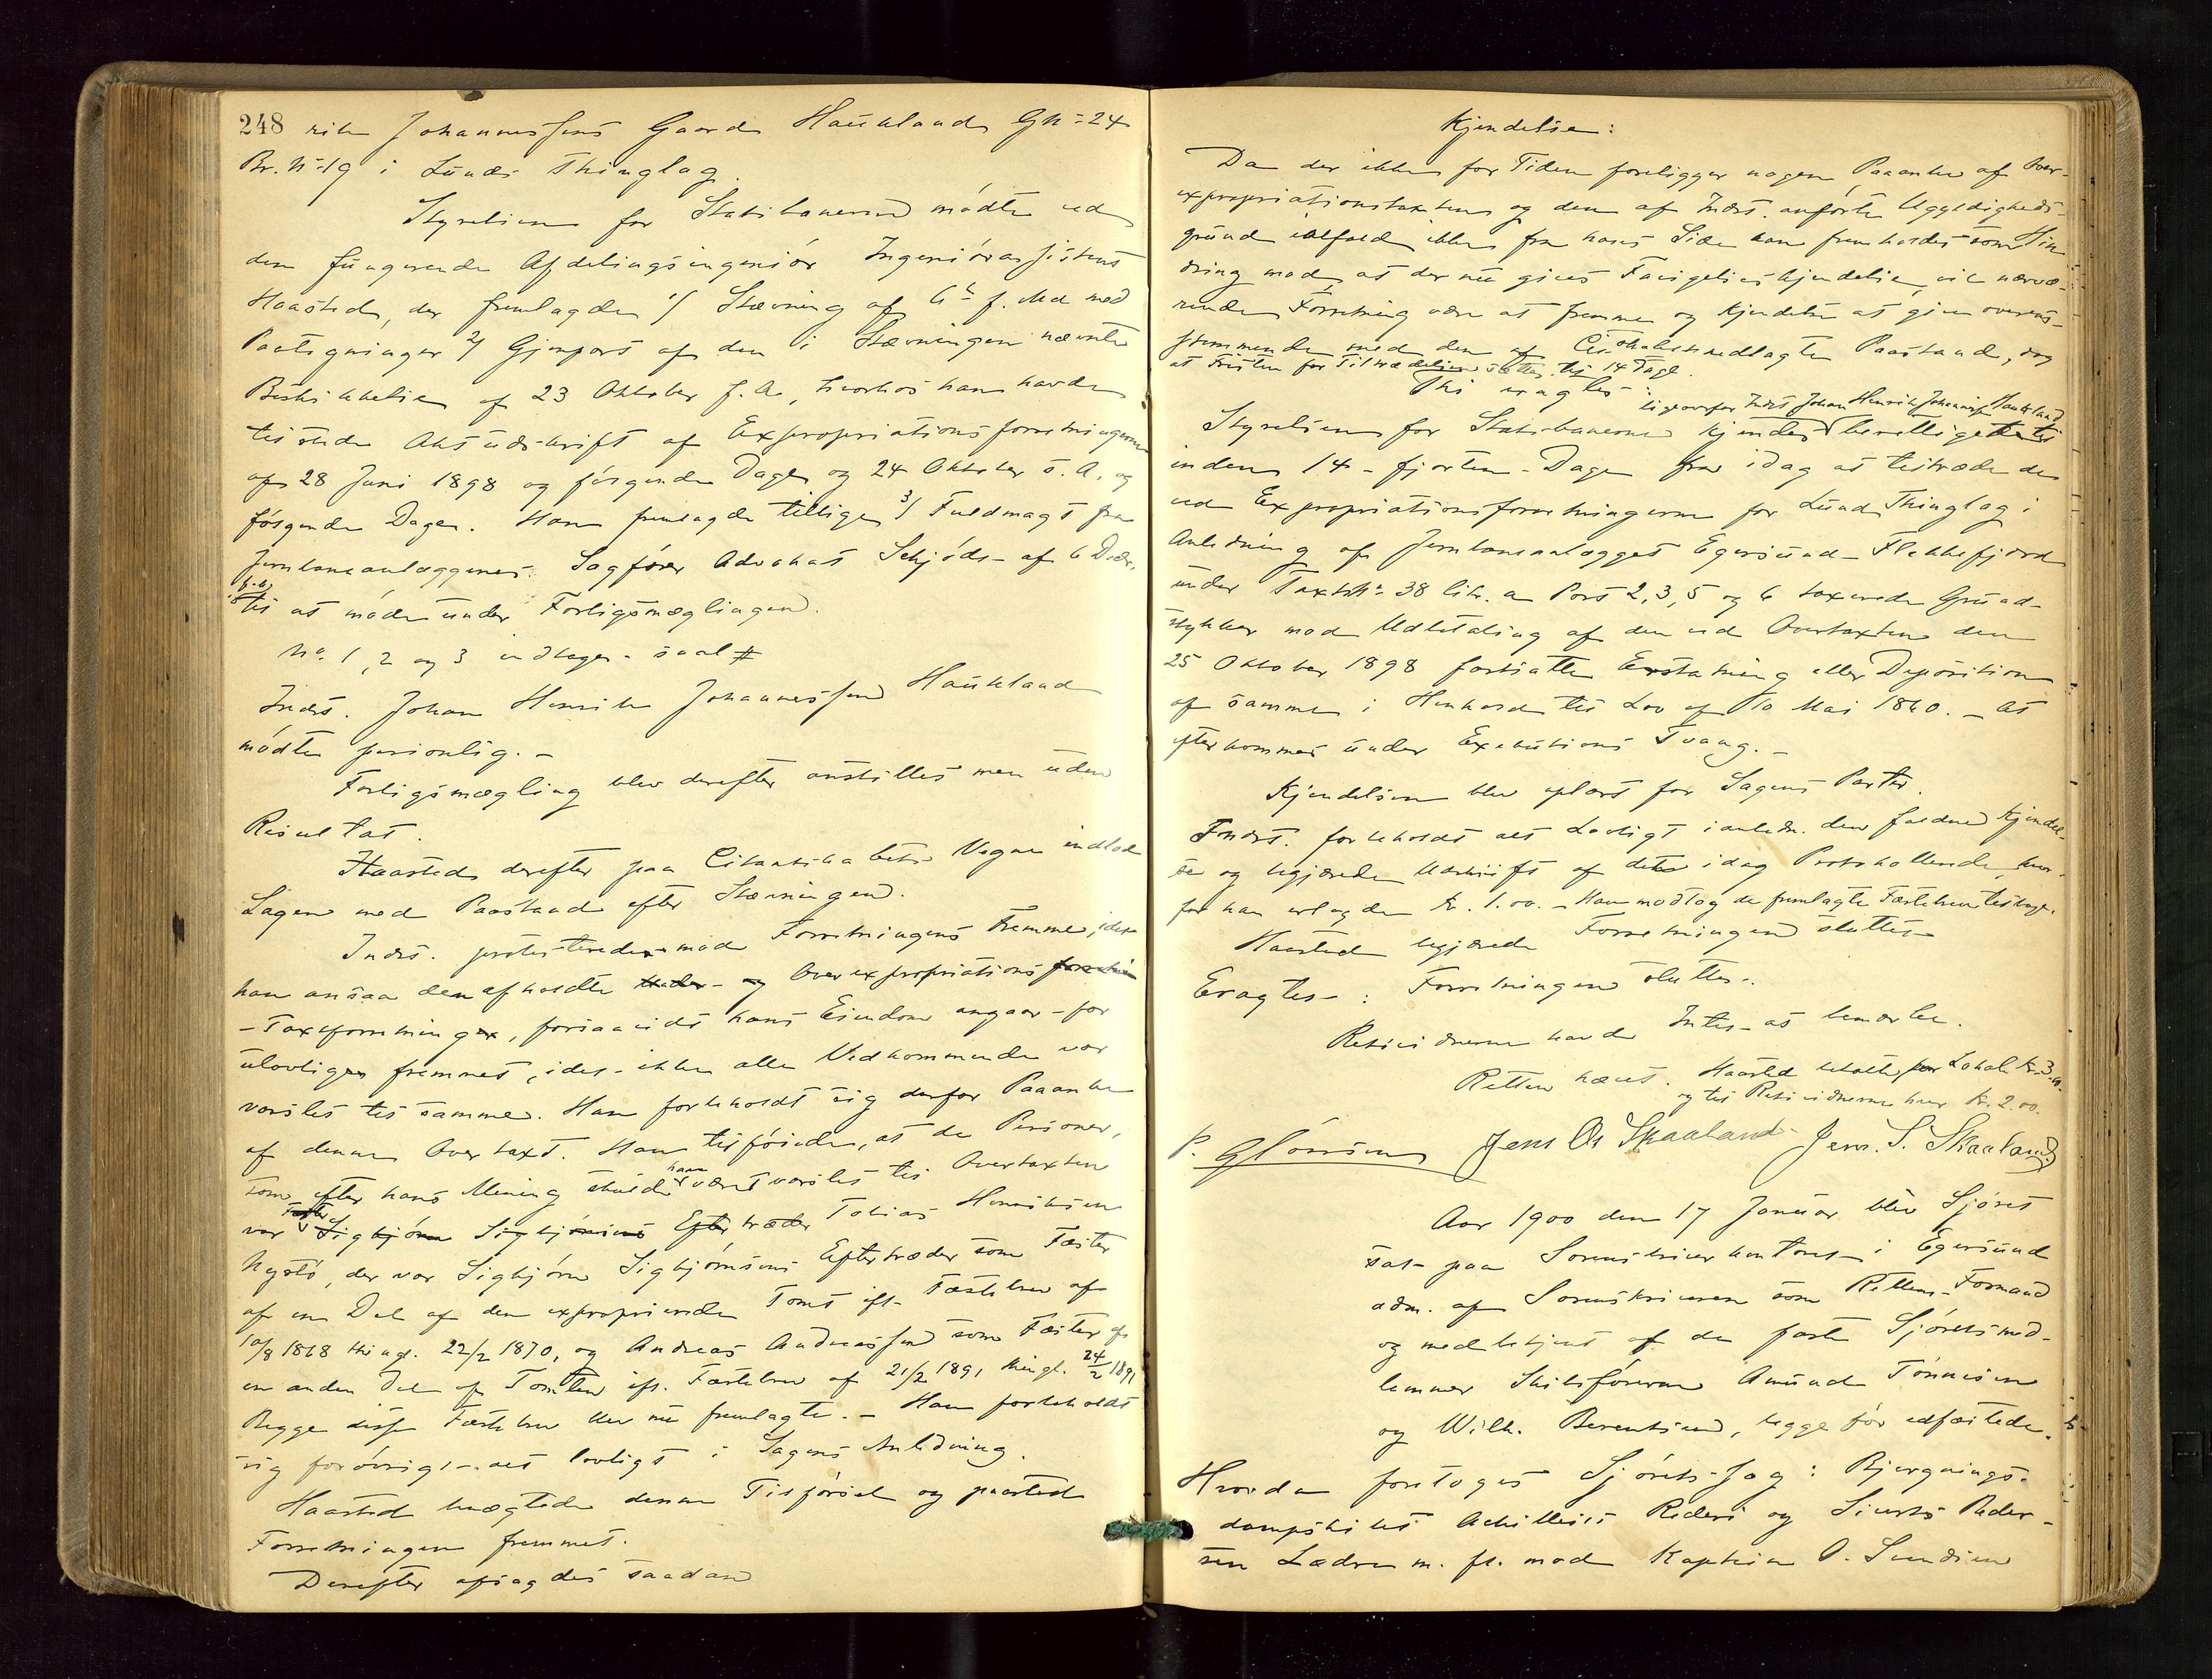 248 rik Johannessens Gaard Haukland GN: 24
Br. N: 19 i Lunds Thinglag.
Styrelsen for Statsbanerne mødte ved
den fungerende Afdelingsingeniør Ingeniørassistent
Haasted, der fremlagde 1/ Stævning af 6te f. Md med
Paategninger 2/ Gjenpart af den i Stævningen nævnte
Beskikkelse af 23 Oktober f. A., hvorhos han havde
tilstede Aktudskrift af Expropriationsforretningerne
af 28 Juni 1898 og følgende Dage og 24 Oktober s. A. og
følgende Dage. Han fremlagde tillige 3/ Fuldmagt fra
Jernbaneanlæggenes Sagfører Advokat Schjødt af 6 Decbr.
til at møde under Forligsmæglingen.
No. 1, 2 og 3 indtages saal #
Indst. Johan Henrik Johannessen Haukland
mødte personlig. -
Forligsmægling blev derefter anstillet men uden
Resultat.
Haasted derefter paa Citantskabets Vegne indlod
Sagen med Paastand efter Stævningen.
Indst. protesterede mod Forretningens Fremme, idet
han ansaa den afholdte Under- og Overexpropriationsforretnin
- Taxtforretninger, forsaavidt hans Eiendom angaar - for
ulovligen fremmet, idet ikke alle Vedkommende var
varslet til samme. Han forbeholdt sig derfor Paaanke
af denne Overtaxt. Han tilføiede, at de Personer,
som efter hans Mening skulde have været varslet til Overtaxten
var Sigbjørn Sigbjørnsens Eftertræder Tobias Henriksen
Nystø, der var Sigbjørn Sigbjørnsens Eftertræder som Fæster
af en Del af den exproprierede Tomt ifl. Fæstebrev af
10/8 1868 thingl. 22/2 1870, og Andreas Andreassen som Fæster af
en anden Del af Tomten ifl. Fæstebrev af 21/2 1891 thingl. 24/2 1891
Begge disse Fæstebreve blev nu fremlagte. - Han forbeholdt
sig forøvrigt alt lovligt i Sagens Anledning.
Haasted benægtede denne Tilførsel og paastod
Forretningen fremmet.
Derefter afsagdes saadan
Kjendelse:
Da der ikke for Tiden foreligger nogen Paaanke af Over-
expropriationstaxten og den af Indst. anførte Ugyldigheds-
grund ialfald ikke fra hans Side kan fremholdes som Hin
dring mod, at der nu gives Tvangskjendelse, vil nærvæ-
rende Forretning være at fremme og Kjendelse at give overens-
stemmende med den af Citantskabet nedlagte Paastand, dog
at Fristen for Tiltrædelsen sættes til 14 Dage.
Thi eragtes:
ligeoverfor Indst. Johan Henrik Johannessen Haukland
Styrelsen for Statsbanerne kjendes berettiget til
inden 14 - fjorten - Dage fra idag at tiltræde de
ved Expropriationsforretningerne for Lunds Thinglag i
Anledning af Jernbaneanlægget Egersund - Flekkefjord
under Taxt No 38 litr. a Post 2, 3, 5 og 6 taxerede Grund-
stykker mod Udbetaling af den ved Overtaxten den
25 Oktober 1898 fastsatte Erstatning eller Deposition
af samme i Henhold til Lov af 10 Mai 1860. - At
efterkommes under Exekutions Tvang. -
Kjendelsen blev oplæst for Sagens Parter.
Indst. forbeholdt alt Lovligt i anledn. den faldne Kjendel-
se og begjærede Udskrift af det idag Protokollerede, hvor-
for han erlagde kr. 1.00. - Han modtog de fremlagte Fæstebreve tilbage.
Haasted begjærede Forretningen sluttet
Eragtes: Forretningen sluttes.
Retsvidnerne havde Intet at bemærke.
Retten hævet. Haasted betalte for Lokale kr. 3.00
og til Retsvidnerne hver kr. 2.00.
Jens Os Skaaland Jens. S. Skaaland
Aar 1900 den 17 Januar blev Sjøret
sat paa Sorenskriverkontoret i Egersund
adm. af Sorenskriveren som Rettens Formand
og medbetjent af de faste Sjøretsmed-
lemmer Skibsførerne Amund Tønnesen
og Wilh. Berentsen, begge før edfæstede.
Hvorda foretoges Sjørets-Sag: Bjergnings-
dampskibet Achilles's Rederi og Siverts Peder-
sen Lædre m. fl. mod Kaptein O. Svendsen